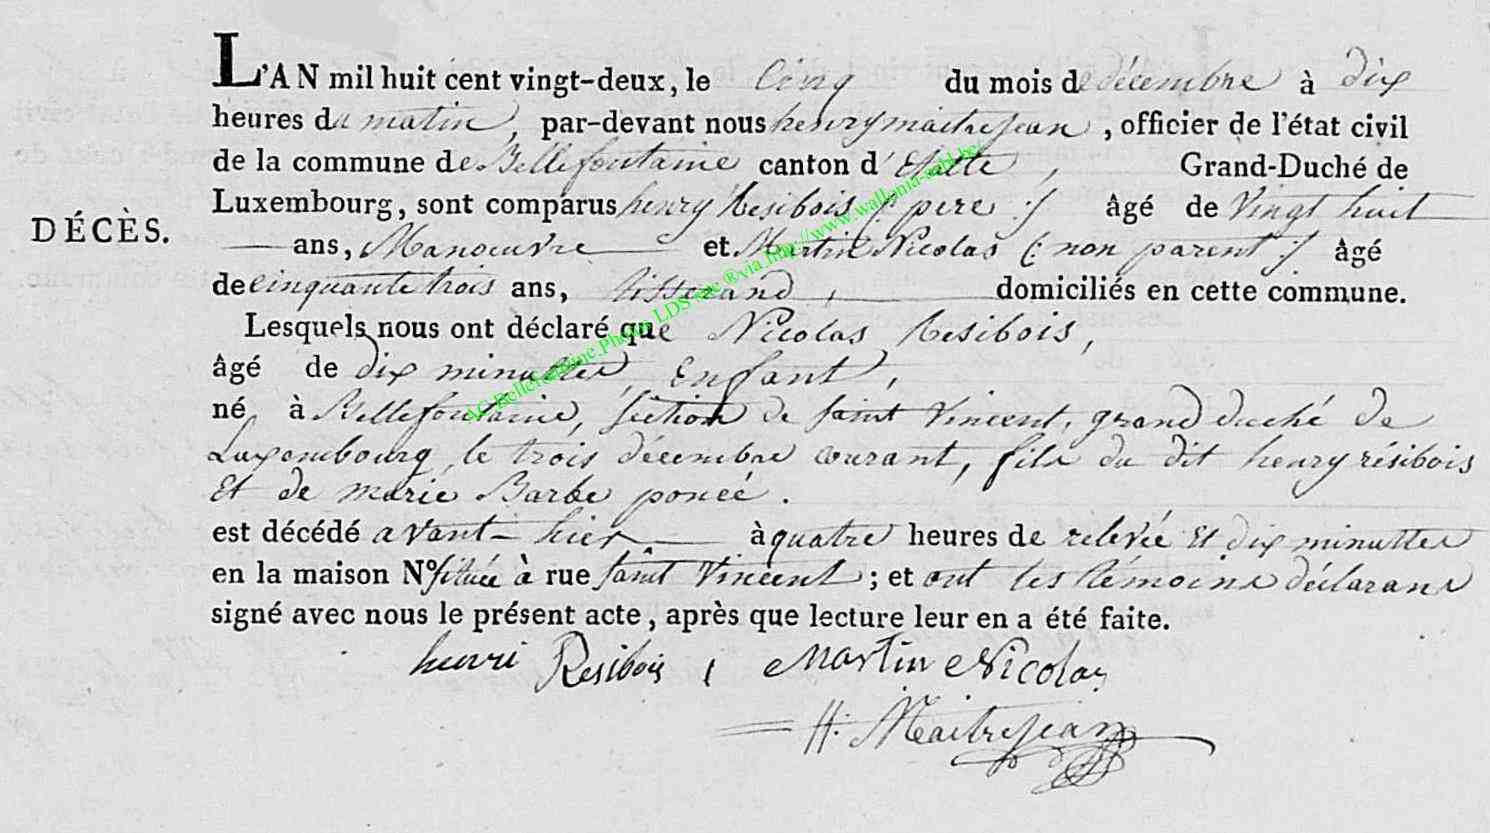 L'AN mil huit cent vingt-deux, le Cinq du mois de décembre à dix
heures du matin, par-devant nous henry maitrejean, officier de l'état civil
de la commune de Bellefontaine canton d'Etalle, Grand-Duché de
Luxembourg, sont comparus henry Resibois (: pere :) âgé de Vingt huit
DÉCÈS.
ans, Manoeuvre et Martin Nicolas (: non parent :) âgé
de cinquante trois ans, tisserand, domiciliés en cette commune.
Lesquels nous ont déclaré que Nicolas Resibois,
âgé de dix minuttes, Enfant,
né à Bellefontaine, section de saint Vincent, grand duché de
Luxembourg, le trois décembre courant, fils du dit henry résibois
Et de marie Barbe poncé.
est décédé avant-hier à quatre heures de relevée et dix minuttes
en la maison N° située à rue saint Vincent; et ont les témoins déclarans
signé avec nous le présent acte, après que lecture leur en a été faite.
henri Resibois, Martin Nicolas
H. Maitrejean
AC Bellefontaine Photos LDS ®via http://www.wallonia-asbl.be